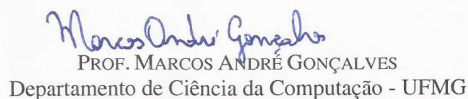 Marcos André Gonçalves
PROF. MARCOS ANDRÉ GONÇALVES
Departamento de Ciência da Computação - UFMG